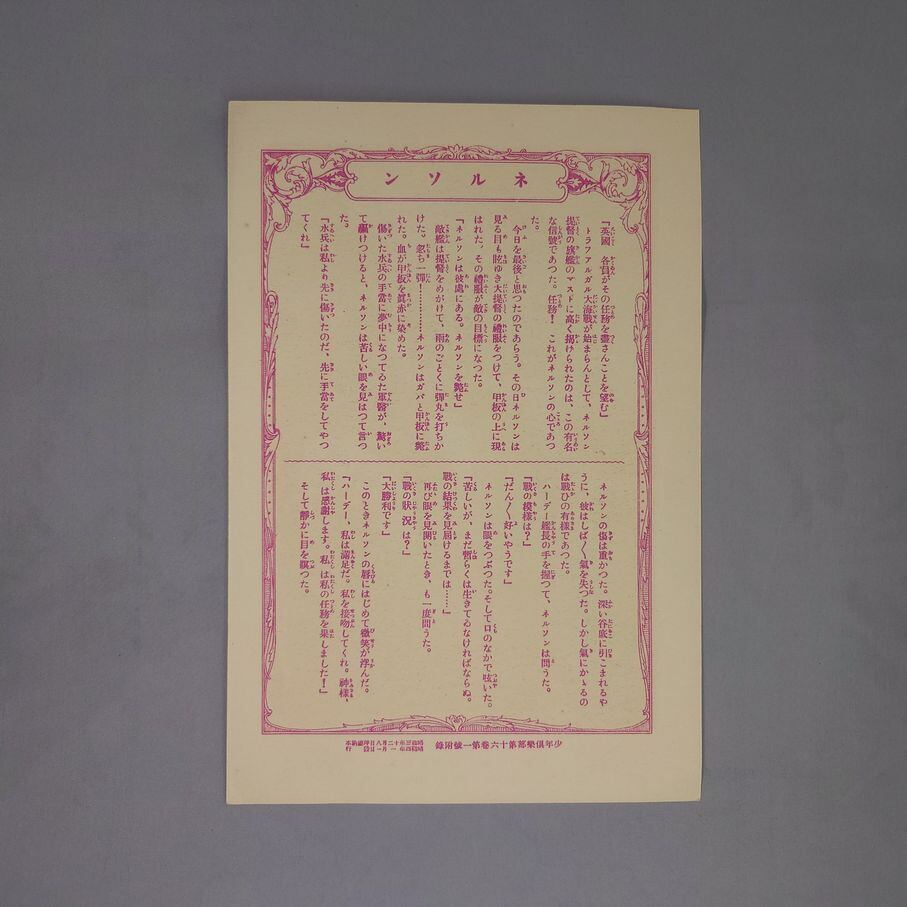 ネルソン
『英國 各員がその任務を盡さんことを望む』
トラフアルガル大海戰が始まらんとして、ネルソン
提督の旗艦のマストに高く揭げられたのは、この有名
な信號であつた。任務！ これがネルソンの心であつ
た。
今日を最後と思つたのであらう。その日ネルソンは
見る目も眩ゆき大提督の禮服をつけて、甲板の上に現
はれた。その禮服が敵の目標になつた。
『ネルソンは彼處にある。ネルソンを斃せ』
敵艦は提督をめがけて、雨のごとくに彈丸を打ちか
けた。忽ち一彈！…………ネルソンはガバと甲板に斃
れた。血が甲板を眞赤に染めた。
傷いた水兵の手當に夢中になつてるた軍醫が、驚い
て驅けつけると、ネルソンは苦しい眼を見はつて言つ
た。
『水兵は私より先に傷いたのだ、先に手當をしてやつ
てくれ』
ネルソンの傷は重かつた。深い谷底に引こまれるや
うに、彼はしば〳〵氣を失つた。しかし氣にかゝるの
は戰ひの有樣であつた。
ハーデー艦長の手を握つて、ネルソンは問うた。
『戰の模樣は？』
『だん〳〵好いやうです』
ネルソンは眼をつぶつた。そして口のなかで呟いた。
『苦しいが、まだ暫らくは生きてるなければならぬ。
戰の結果を見屆けるまでは……』
再び眼を見開いたとき、も一度問うた。
『戰の狀況は？』
『大勝利です』
このときネルソンの唇にはじめて微笑が浮んだ。
『ハーデー、私は滿足だ。私を接吻してくれ。神樣、
私は感謝します。私は私の任務を果しました！』
そして靜かに目を瞑つた。
少年俱樂部第十六卷第一號附錄
昭和三年十二月八日印刷納本
昭和四年一月一日發行